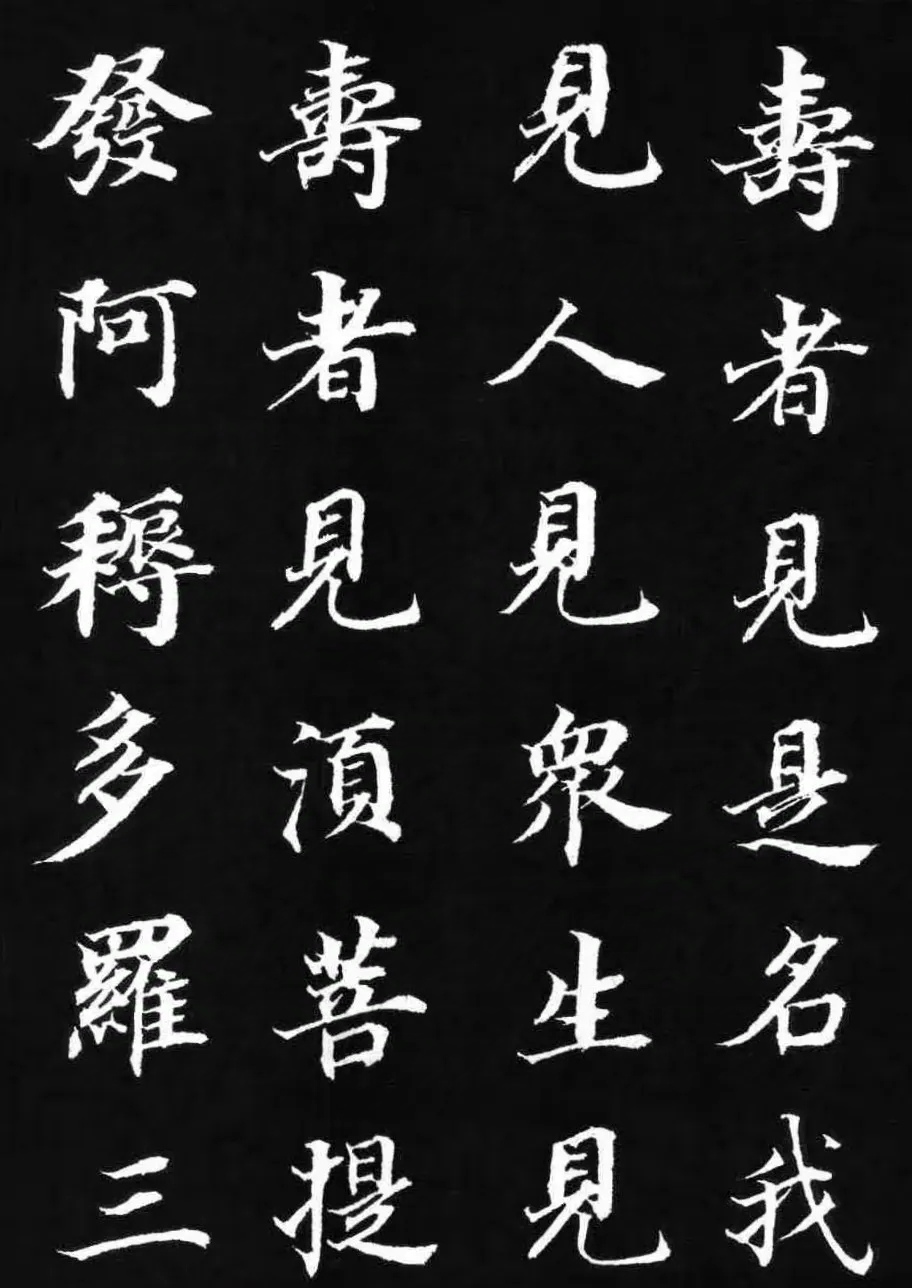 壽者見是名我
見人見眾生見
壽者見須菩提
發阿耨多羅三